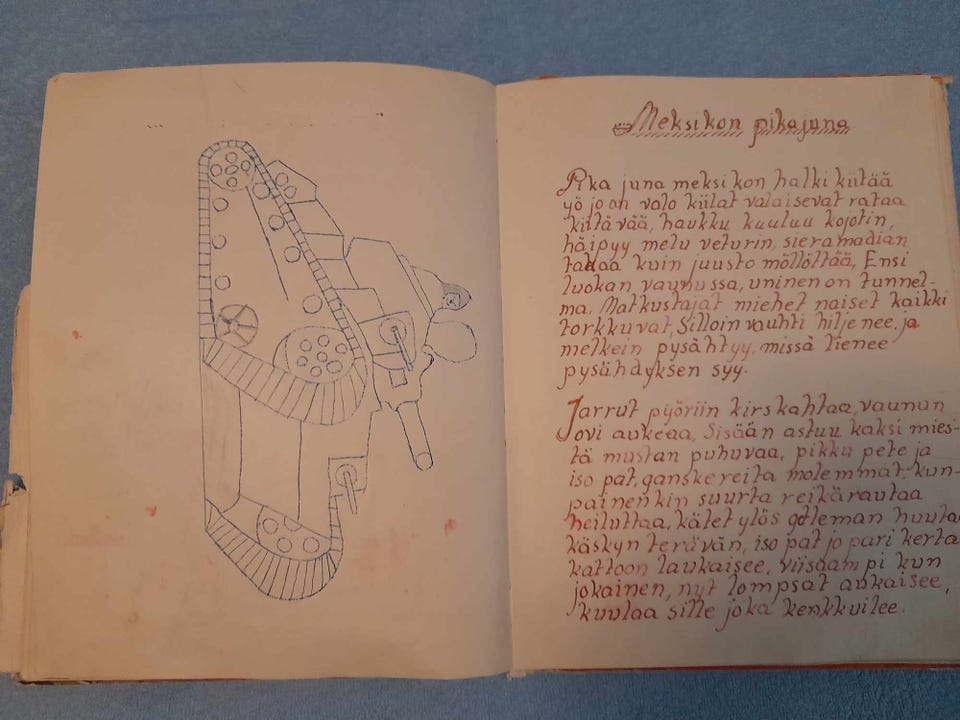 Meksikon pikajuna
Pika juna meksikon halki kiitää
yö jo on valo külat valaisevat rataa
kiitävää, haukku kuuluu kojotin,
häipyy melu veturin, sieramadian
takaa kuin juusto möllöttää, Ensi
luokan vaunussa, uninen on tunnel-
ma. Matkustajat miehet naiset kaikki
torkkuvat, Silloin vauhti hiljenee, ja
melkein pysähtyy, missä lienee
pysähdyksen syy.
Jarrut pyöriin kirskahtaa, vaunun
ovi aukeaa, Sisään astuu kaksi mies-
tä mustan puhuvaa, pikku pete ja
iso pat, ganskereita molemmat, kum-
painenkin suurta reikärautaa
heiluttaa, kätet ylös gotleman huuta
käskyn terävän, iso pat jo pari kerta
kattoon laukaisee, viisaampi kun
jokainen, nyt lompsat aukaisee,
kuulaa sille joka kenkkuilee.